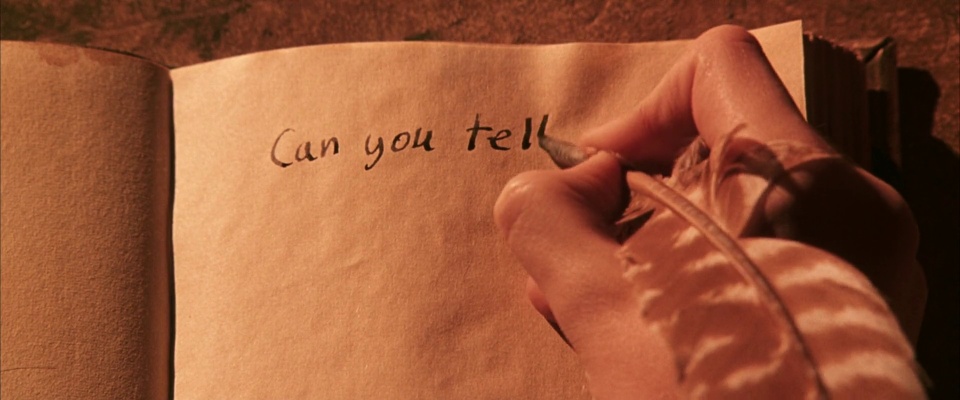 Can you tell